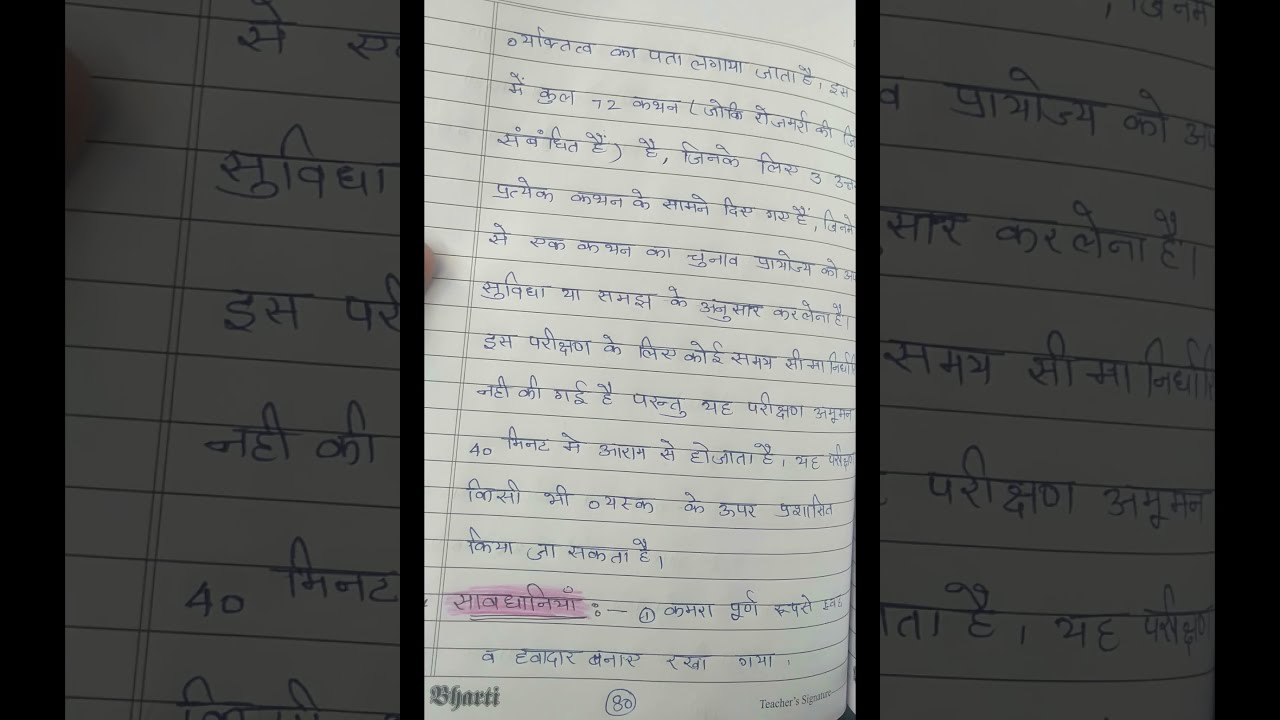 व्यक्तित्व का पता लगाया जाता है, इस
में कुल 72 कथन (जोकि रोजमर्रा की
संबंधित हैं) है, जिनके लिए 3
प्रत्येक कथन के सामने दिए गए हैं, जिनमें
से एक कथन का चुनाव प्रायोज्य को
सुविधा या समझ के अनुसार करलेना है।
इस परीक्षण के लिए कोई समय सीमा
नही की गई है परन्तु यह परीक्षण अमूमन
40 मिनट मे आराम से होजाता है, यह परीक्षण
किसी भी व्यस्क के ऊपर प्रशासित
किया जा सकता है।
सावधानियाँ :- ① कमरा पूर्ण रूपसे
व हवादार बनाए रखा गया।
Bharti
80
Teacher's Signature